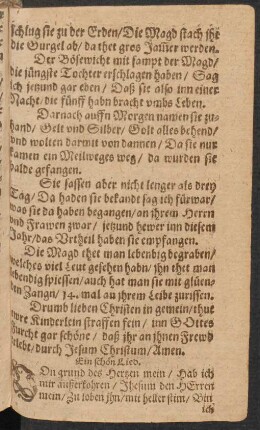 schlug sie zu der Erden/Die Magd stach jhr
die Gurgel ab/da thet gros Jam̃er werden.
Der Bösewicht mit sampt der Magd/
die jüngste Tochter erschlagen haben/Sag
ich jetzund gar eben/Daß sie also inn einer
Nacht/die fünff habn bracht vmbs Leben.
Darnach auffn Morgen namen sie zu-
hand/Gelt vnd Silber/Golt alles behend/
vnd wolten darmit von dannen/Da sie nur
kamen ein Meilweges weg/da wurden sie
balde gefangen.
Sie sassen aber nicht lenger als drey
Tag/Da haden sie bekandt sag ich fürwar/
was sie da haben begangen/an jhrem Herrn
vnd Frawen zwar/jetzund hewer inn diesem
Jahr/das Vrtheil haben sie empfangen.
Die Magd thet man lebendig begraben/
welches viel Leut gesehen habn/jhn thet man
lebendig spiessen/auch hat man sie mit glüen-
den Zangn/14. mal an jhrem Leibe zurissen.
Drumb lieben Christen in gemein/thut
ewre Kinderlein straffen fein/inn GOttes
Furcht gar schöne/daß jhr an jhnen Frewd
erlebt/durch Jesum Christum/Amen.
Ein schön Lied.
VOn grund des Hertzen mein/Hab ich
mir ausserkohren/Jhesum den HErren
mein/Zu loben jhn/mit heller stim/Bin
ich